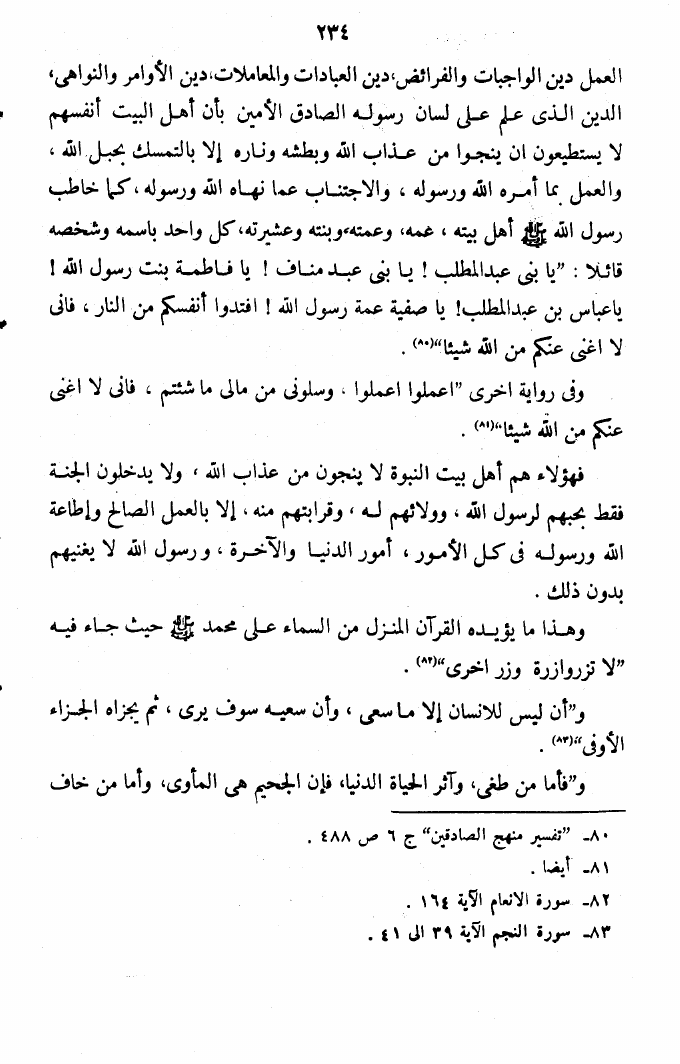 ٢٣٤
العمل دين الواجبات والفرائض،دين العبادات والمعاملات،دين الأوامر والنواهى،
الدين الذى علم على لسان رسوله الصادق الأمين بأن أهل البيت أنفسهم
لا يستطيعون ان ينجوا من عذاب الله وبطشه وناره إلا بالتمسك بحبل الله ،
والعمل بما أمره الله ورسوله ، والاجتناب عما نهاه الله ورسوله ، كما خاطب
رسول الله ﷺ أهل بيته ، عمه، وعمته،وبنته وعشيرته،كل واحد باسمه وشخصه
قائلا : ”يا بنى عبدالمطلب ! يا بنى عبد مناف ! يا فاطمة بنت رسول الله !
ياعباس بن عبدالمطلب! يا صفية عمة رسول الله ! افتدوا أنفسكم من النار ، فانى
لا اغنى عنكم من الله شيئا“(٨٠) .
وفى رواية اخرى ”اعملوا اعملوا ، وسلونى من مالى ما شئتم ، فانى لا اغنى
عنكم من الله شيئا“(٨١) .
فهؤلاء هم أهل بيت النبوة لا ينجون من عذاب الله ، ولا يدخلون الجنة
فقط بحبهم لرسول الله ، وولائهم له ، وقرابتهم منه ، إلا بالعمل الصالح وإطاعة
الله ورسوله فى كل الأمور ، أمور الدنيا والآخرة ، ورسول الله لا يغنيهم
بدون ذلك .
وهذا ما يؤيده القرآن المنزل من السماء على محمد ﷺ حيث جاء فيه
”لا تزروازرة وزر اخرى“(٨٢) .
و”أن ليس للانسان إلا ما سعى ، وأن سعيه سوف يرى ، ثم يجزاه الجزاء
الأوفى“(٨٣) .
و”فأما من طغى، وآثر الحياة الدنيا، فإن الجحيم هى المأوى، وأما من خاف
٨٠ـ ”تفسير منهج الصادقين“ ج ٦ ص ٤٨٨ .
٨١ـ أيضا .
٨٢ـ سورة الانعام الآية ١٦٤ .
٨٣ـ سورة النجم الآية ٣٩ الى ٤١ .